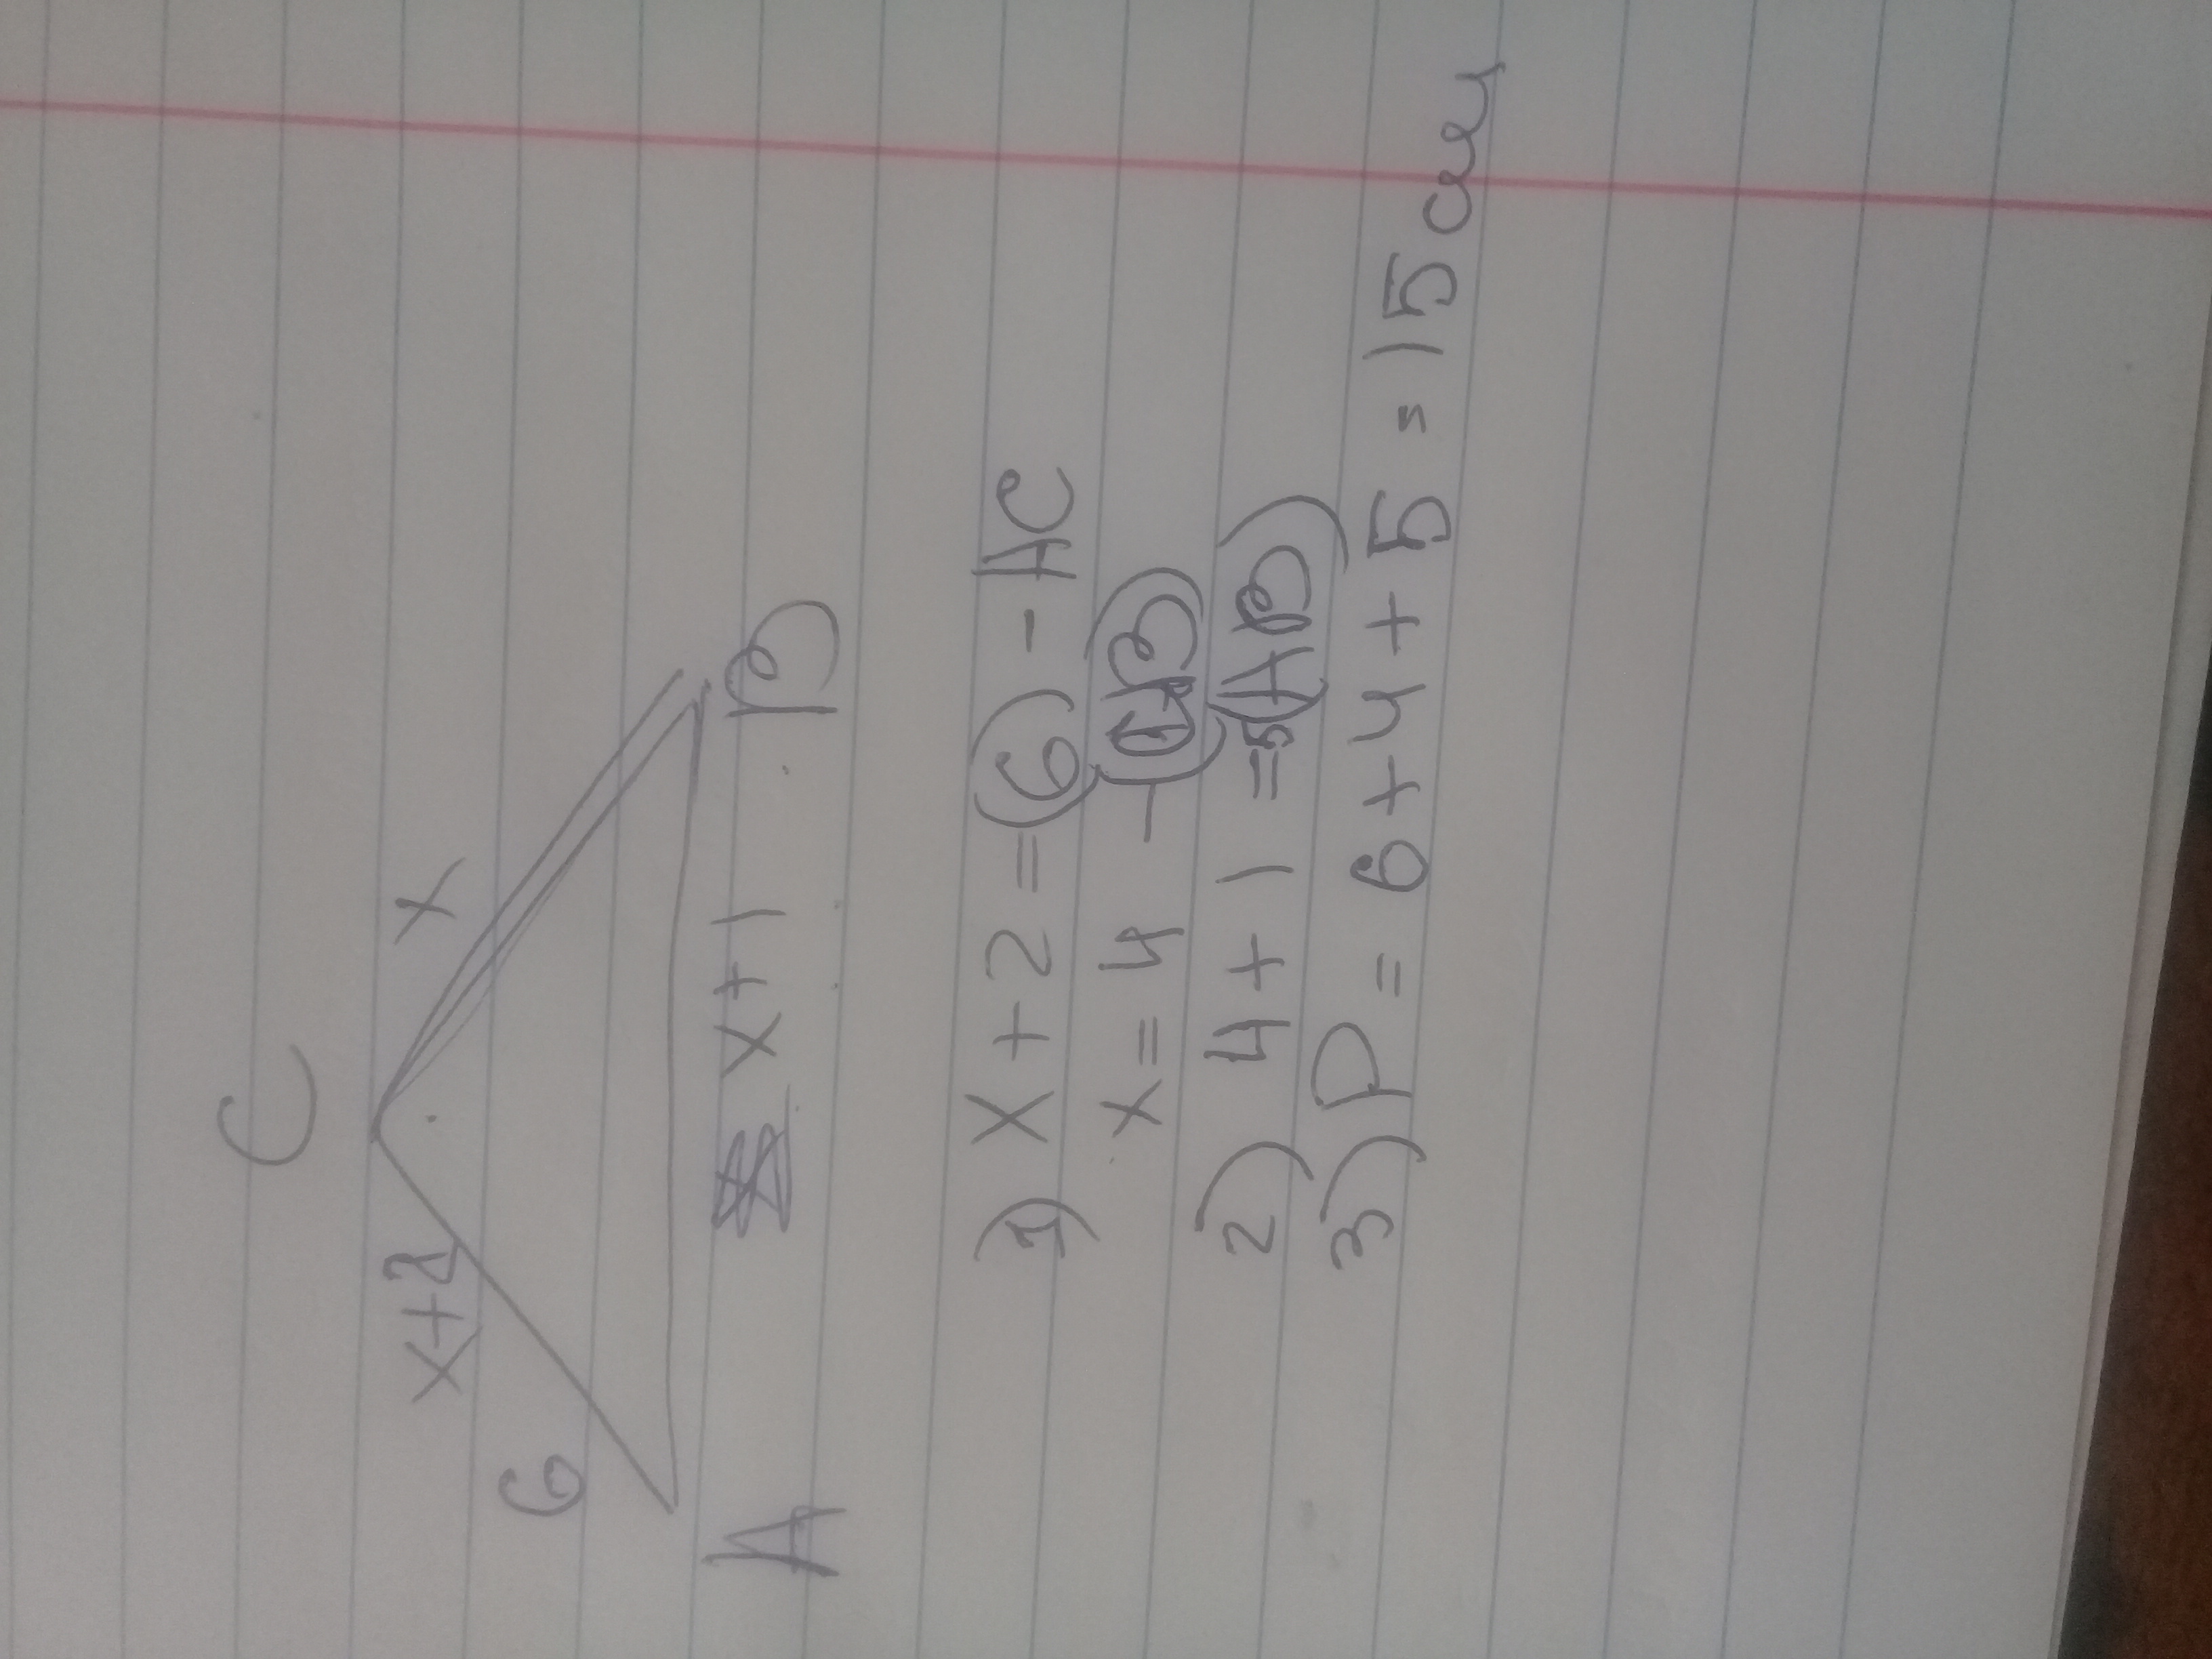 C
x+2 x
6
A x+1 B
1) x+2=(6) - AC
x=4 - (CB)
2) 4+1=5(AB)
3) P = 6+4+5=15 см